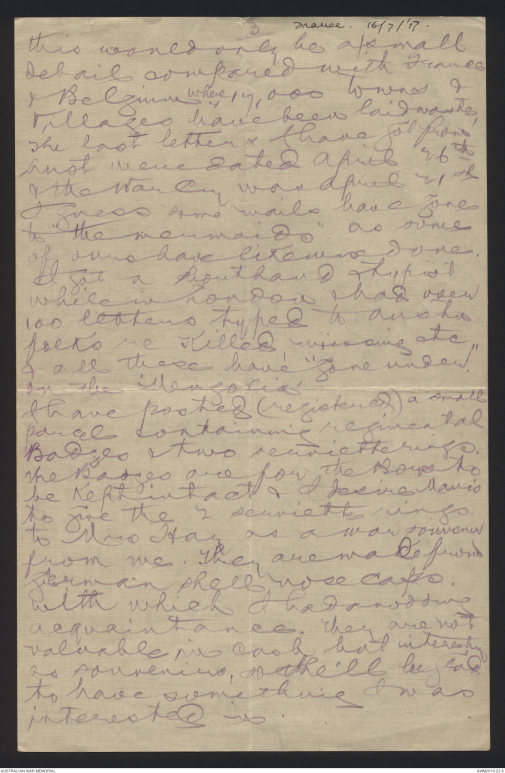 5
France. 16/7/17.
this would only be a small
detail compared with France
& Belgium where 17,000 towns &
Villages have been laid waste,
The last letters I have got from
were dated April 26th
& the War Cry was April 21st
I guess some mails have gone
to "the mermaids" as some
of ours have likewise done.
I got a shorthand & typist
while in London & had over
100 letters typed to
folks re Killed, missing etc
& all these have "gone under"
in the Mongolia.
I have posted (registered) a small
parcel containing regimental
Badges & two serviette rings.
The Badges are for the Boys to
be kept intact & I desire Mavis
to give the 2 serviette rings
to Mrs Hay as a war souvenir
from me. They are made from
german shell nose caps.
with which I had a
acquaintance. They are not
valuable in cash but interesting
as souvenirs, & she'll be glad
to have something I was
interested in
AUSTRALIAN WAR MEMORIAL